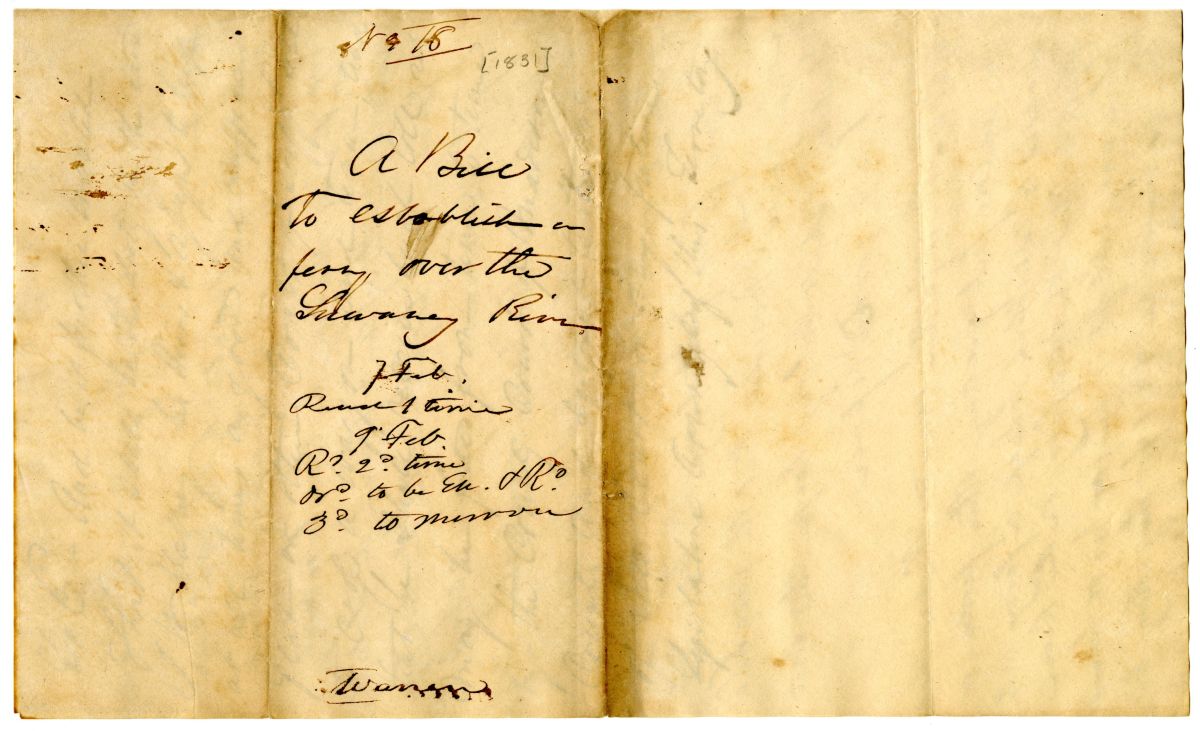 No 18
[1831]
A Bill
To establish a
ferry over the
Suwaney River
7 Feb.
Read 1 time
9" Feb.
Rd. 2d. time
Ord. to be En. & Rd.
3d. to morrow
Warren